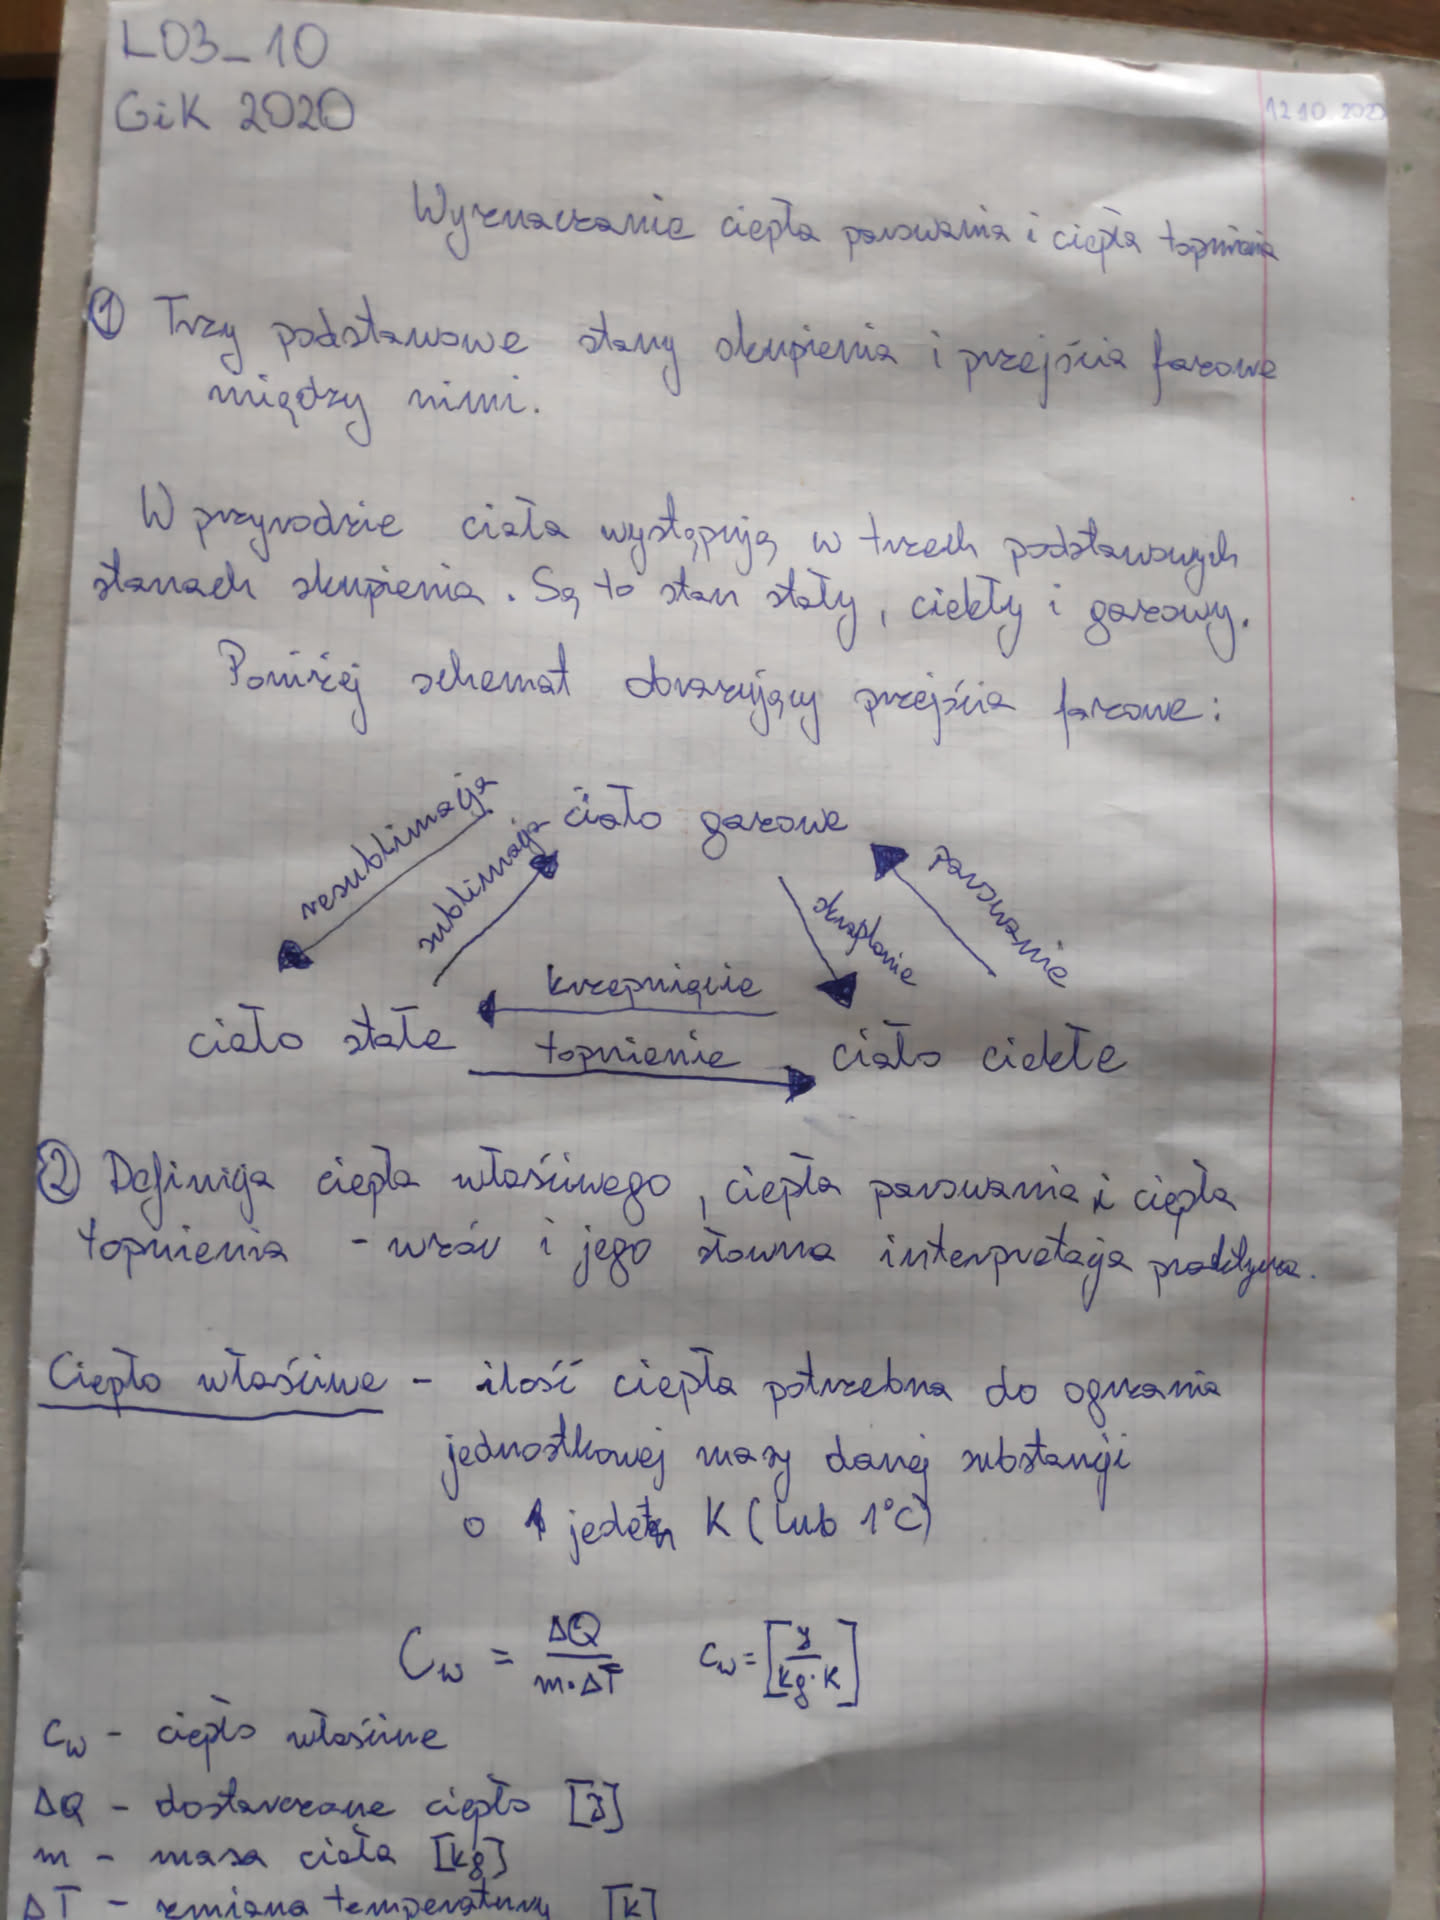 L03_10
GiK 2020
12.10.2020
Wyznaczanie ciepła parowania i ciepła topnienia
① Trzy podstawowe stany skupienia i przejścia fazowe
między nimi.
W przyrodzie ciała występują w trzech podstawowych
stanach skupienia. Są to stan stały, ciekły i gazowy.
Poniżej schemat obrazujący przejścia fazowe:
resublimacja
sublimacja
ciało gazowe
skraplanie
parowanie
krzepnięcie
ciało stałe
topnienie
ciało ciekłe
② Definicja ciepła właściwego, ciepła parowania i ciepła
topnienia - wzór i jego słowna interpretacja praktyczna.
Ciepło właściwe - ilość ciepła potrzebna do ogrzania
jednostkowej masy danej substancji
o jeden K (lub 1°C)
Cw = ΔQ / m·ΔT    cw = [J / kg·K]
Cw - ciepło właściwe
ΔQ - dostarczane ciepło [J]
m - masa ciała [kg]
ΔT - zmiana temperatury [K]